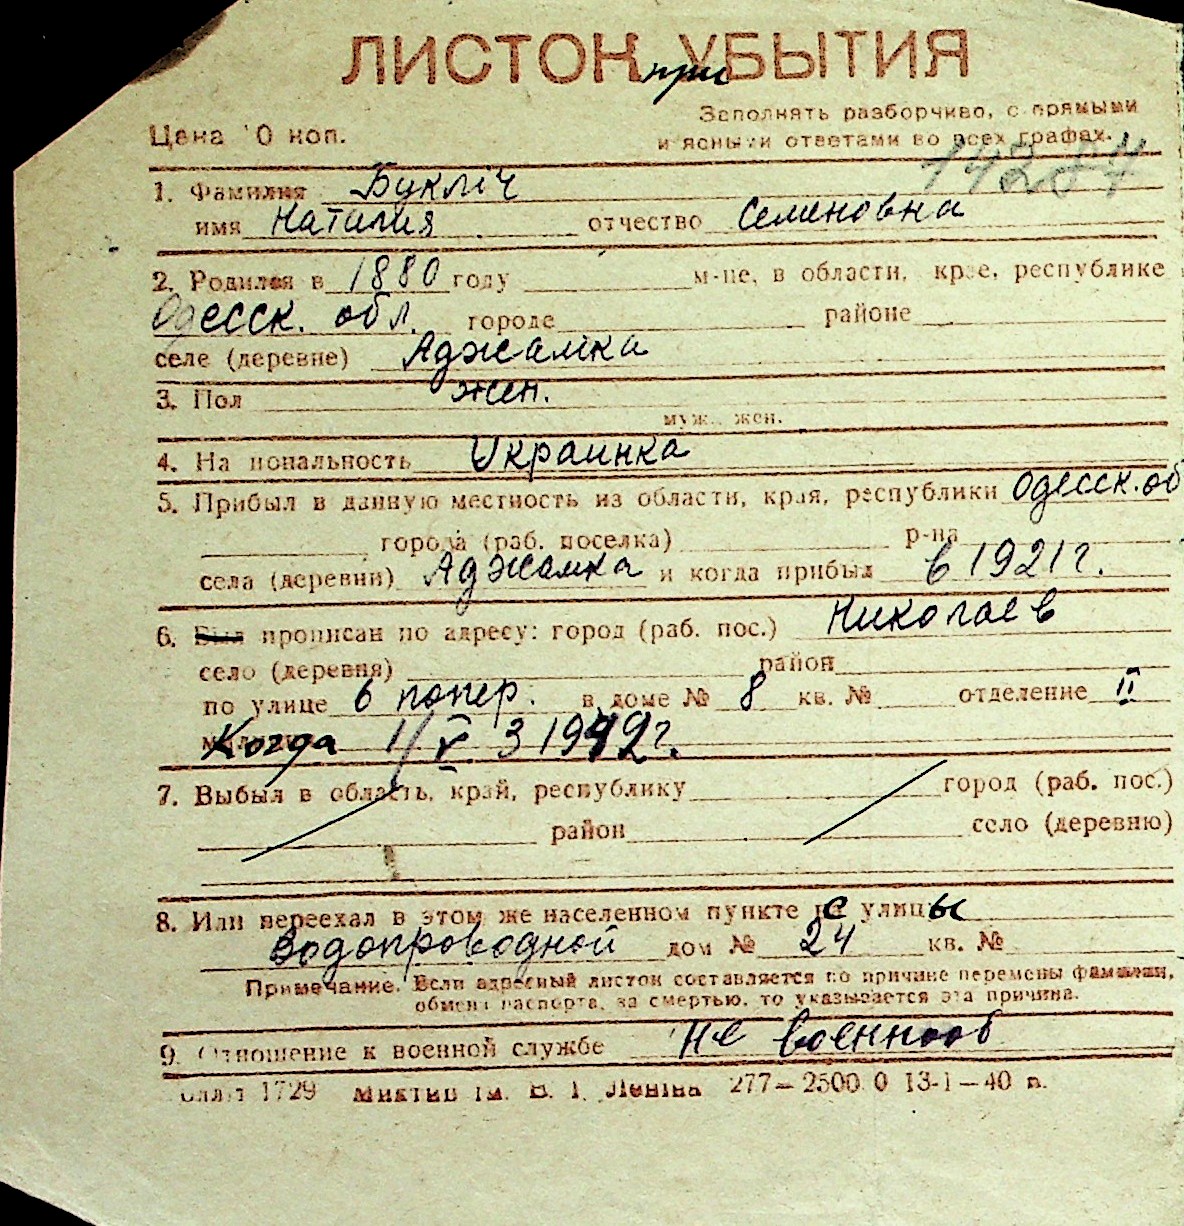 ЛИСТОК при УБЫТИЯ
Заполнять разборчиво, с прямыми
Цена 10 коп. и ясными ответами во всех графах.
14284
1. Фамилия Буклич
имя Наталия отчество Семеновна
2. Родился в 1880 году м-це, в области, крае, республике
Одесск. обл. городе районе
селе (деревне) Аджамка
3. Пол жен.
муж., жен.
4. Национальность Украинка
5. Прибыл в данную местность из области, края, республики Одесск. об
города (раб. поселка) р-на
села (деревни) Аджамка и когда прибыл в 1921 г.
6. Был прописан по адресу: город (раб. пос.) Николаев
село (деревня) район
по улице 6 попер. в доме № 8 кв. № отделение II
Когда 1/V 3 1942 г.
7. Выбыл в область, край, республику город (раб. пос.)
район село (деревню)
8. Или переехал в этом же населенном пункте с улицы
Водопроводной дом № 24 кв. №
Примечание. Если адресный листок составляется по причине перемены фамилии,
обмена паспорта, за смертью, то указывается эта причина.
9. Отношение к военной службе не военнооб
1729 ім. В. І. Леніна 277—2500.0 13-1—40 р.